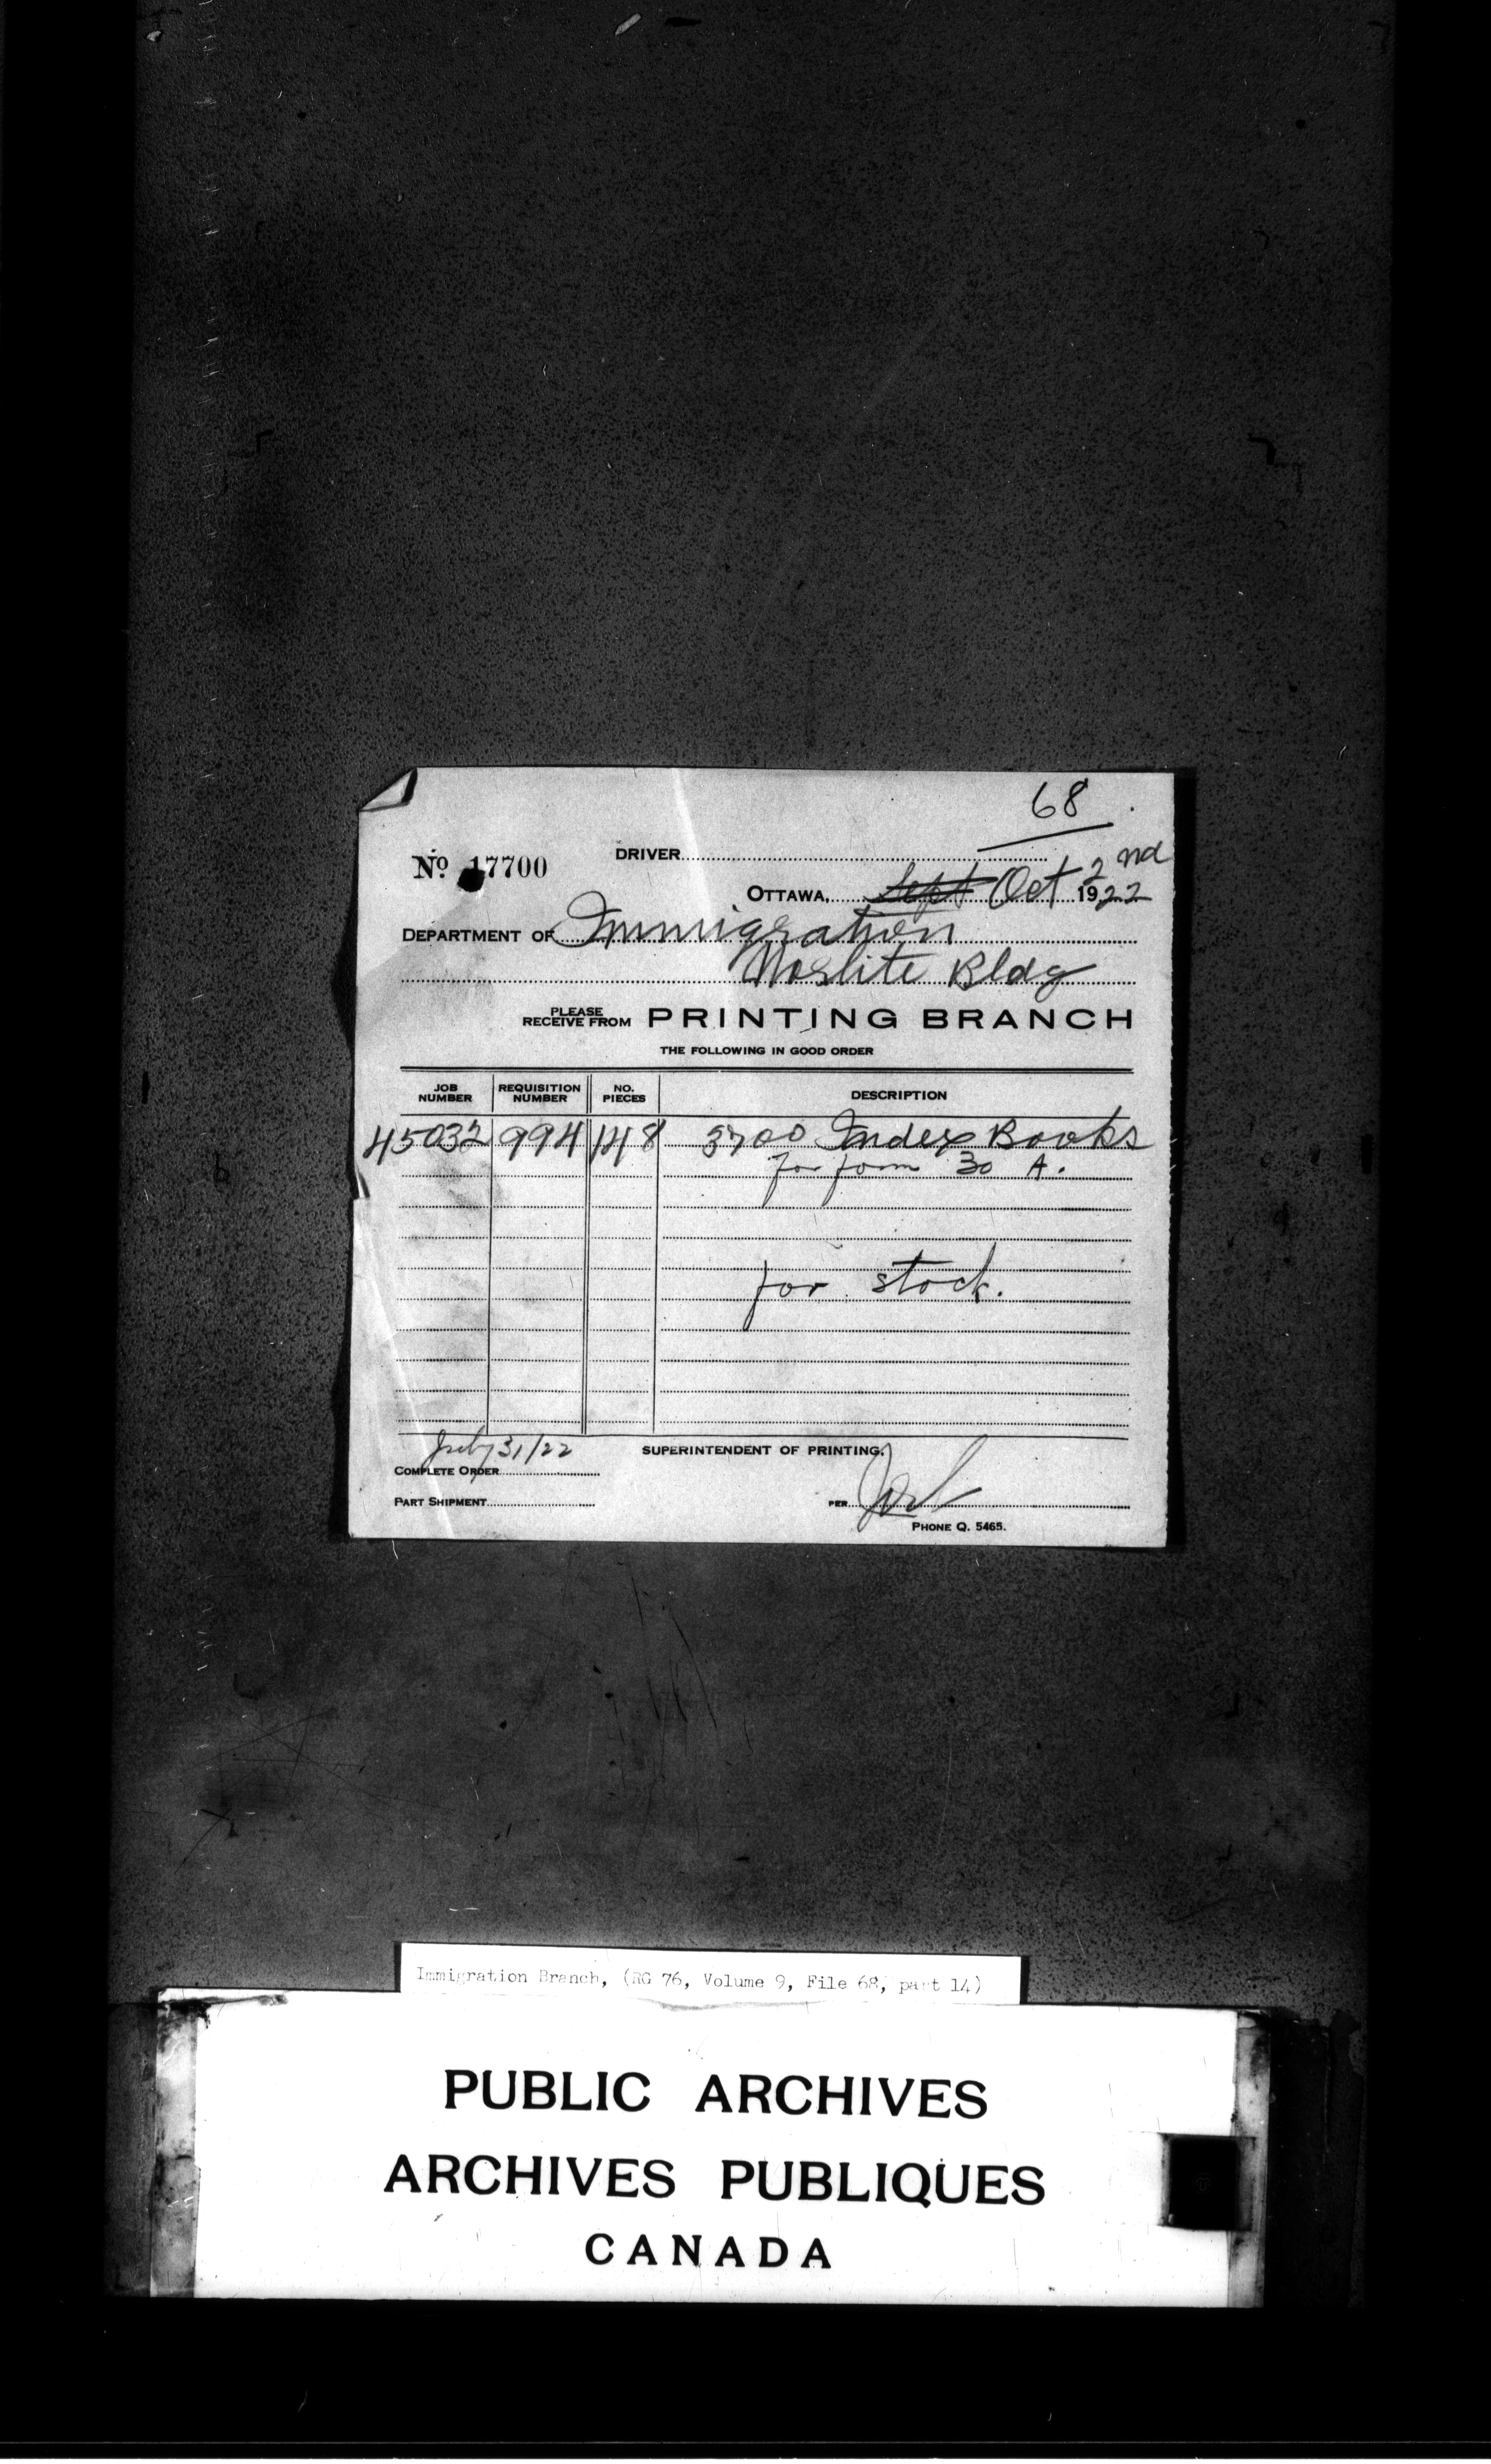 68
No 17700
DRIVER
OTTAWA, Sept Oct 2nd 1922
DEPARTMENT OF Immigration
Norlite Bldg
PLEASE RECEIVE FROM PRINTING BRANCH
THE FOLLOWING IN GOOD ORDER
JOB NUMBER REQUISITION NUMBER NO. PIECES DESCRIPTION
45032 994 148 3700 Index Books
for form 30 A.
for stock.
July 31/22
SUPERINTENDENT OF PRINTING,
COMPLETE ORDER
PART SHIPMENT PER
PHONE Q. 5465.
Immigration Branch, (RG 76, Volume 9, File 68, part 14)
PUBLIC ARCHIVES
ARCHIVES PUBLIQUES
CANADA